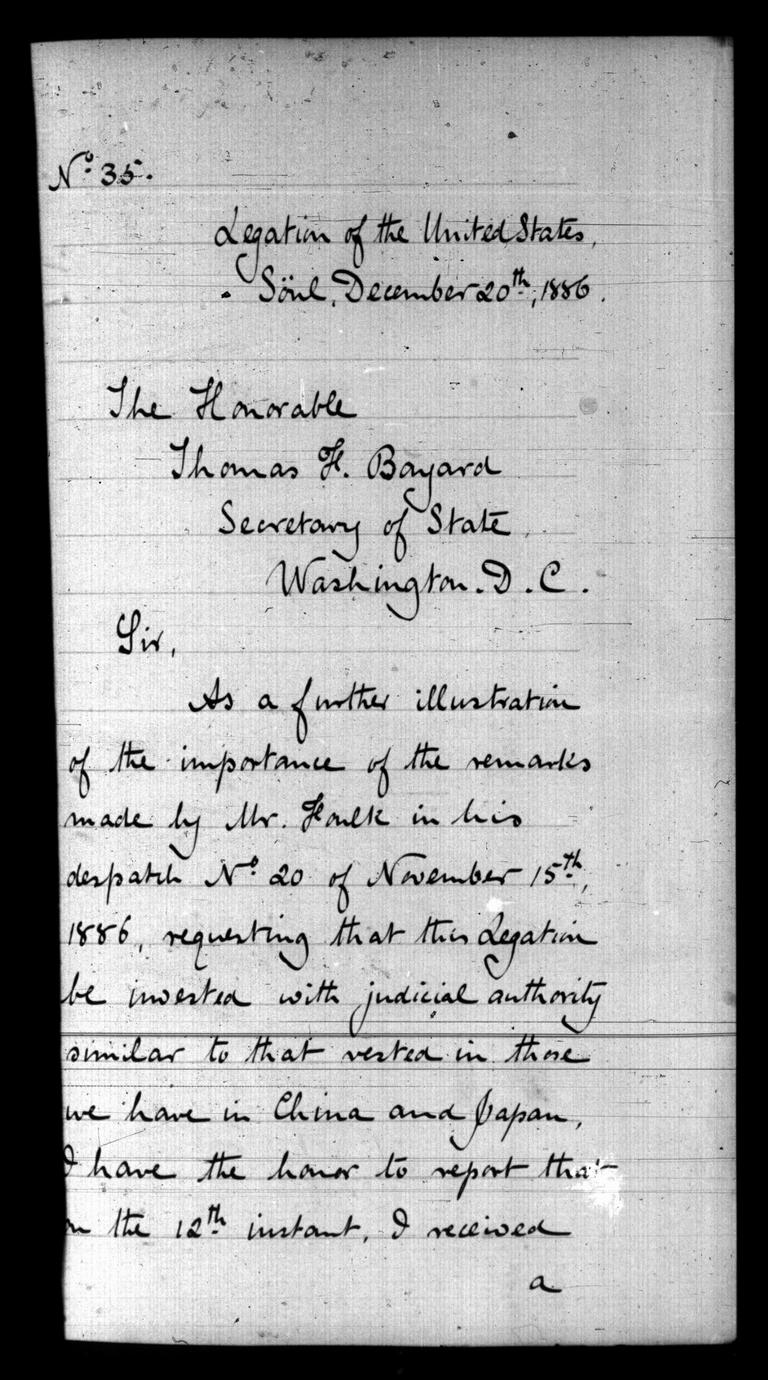 Nº 35.
Legation of the United States,
Söul, December 20th, 1886.
The Honorable
Thomas F. Bayard
Secretary of State,
Washington. D. C.
Sir,
As a further illustration
of the importance of the remarks
made by Mr. Foulk in his
despatch Nº 20 of November 15th,
1886, requesting that this Legation
be invested with judicial authority
similar to that vested in those
we have in China and Japan,
I have the honor to report that
on the 12th instant, I received
a